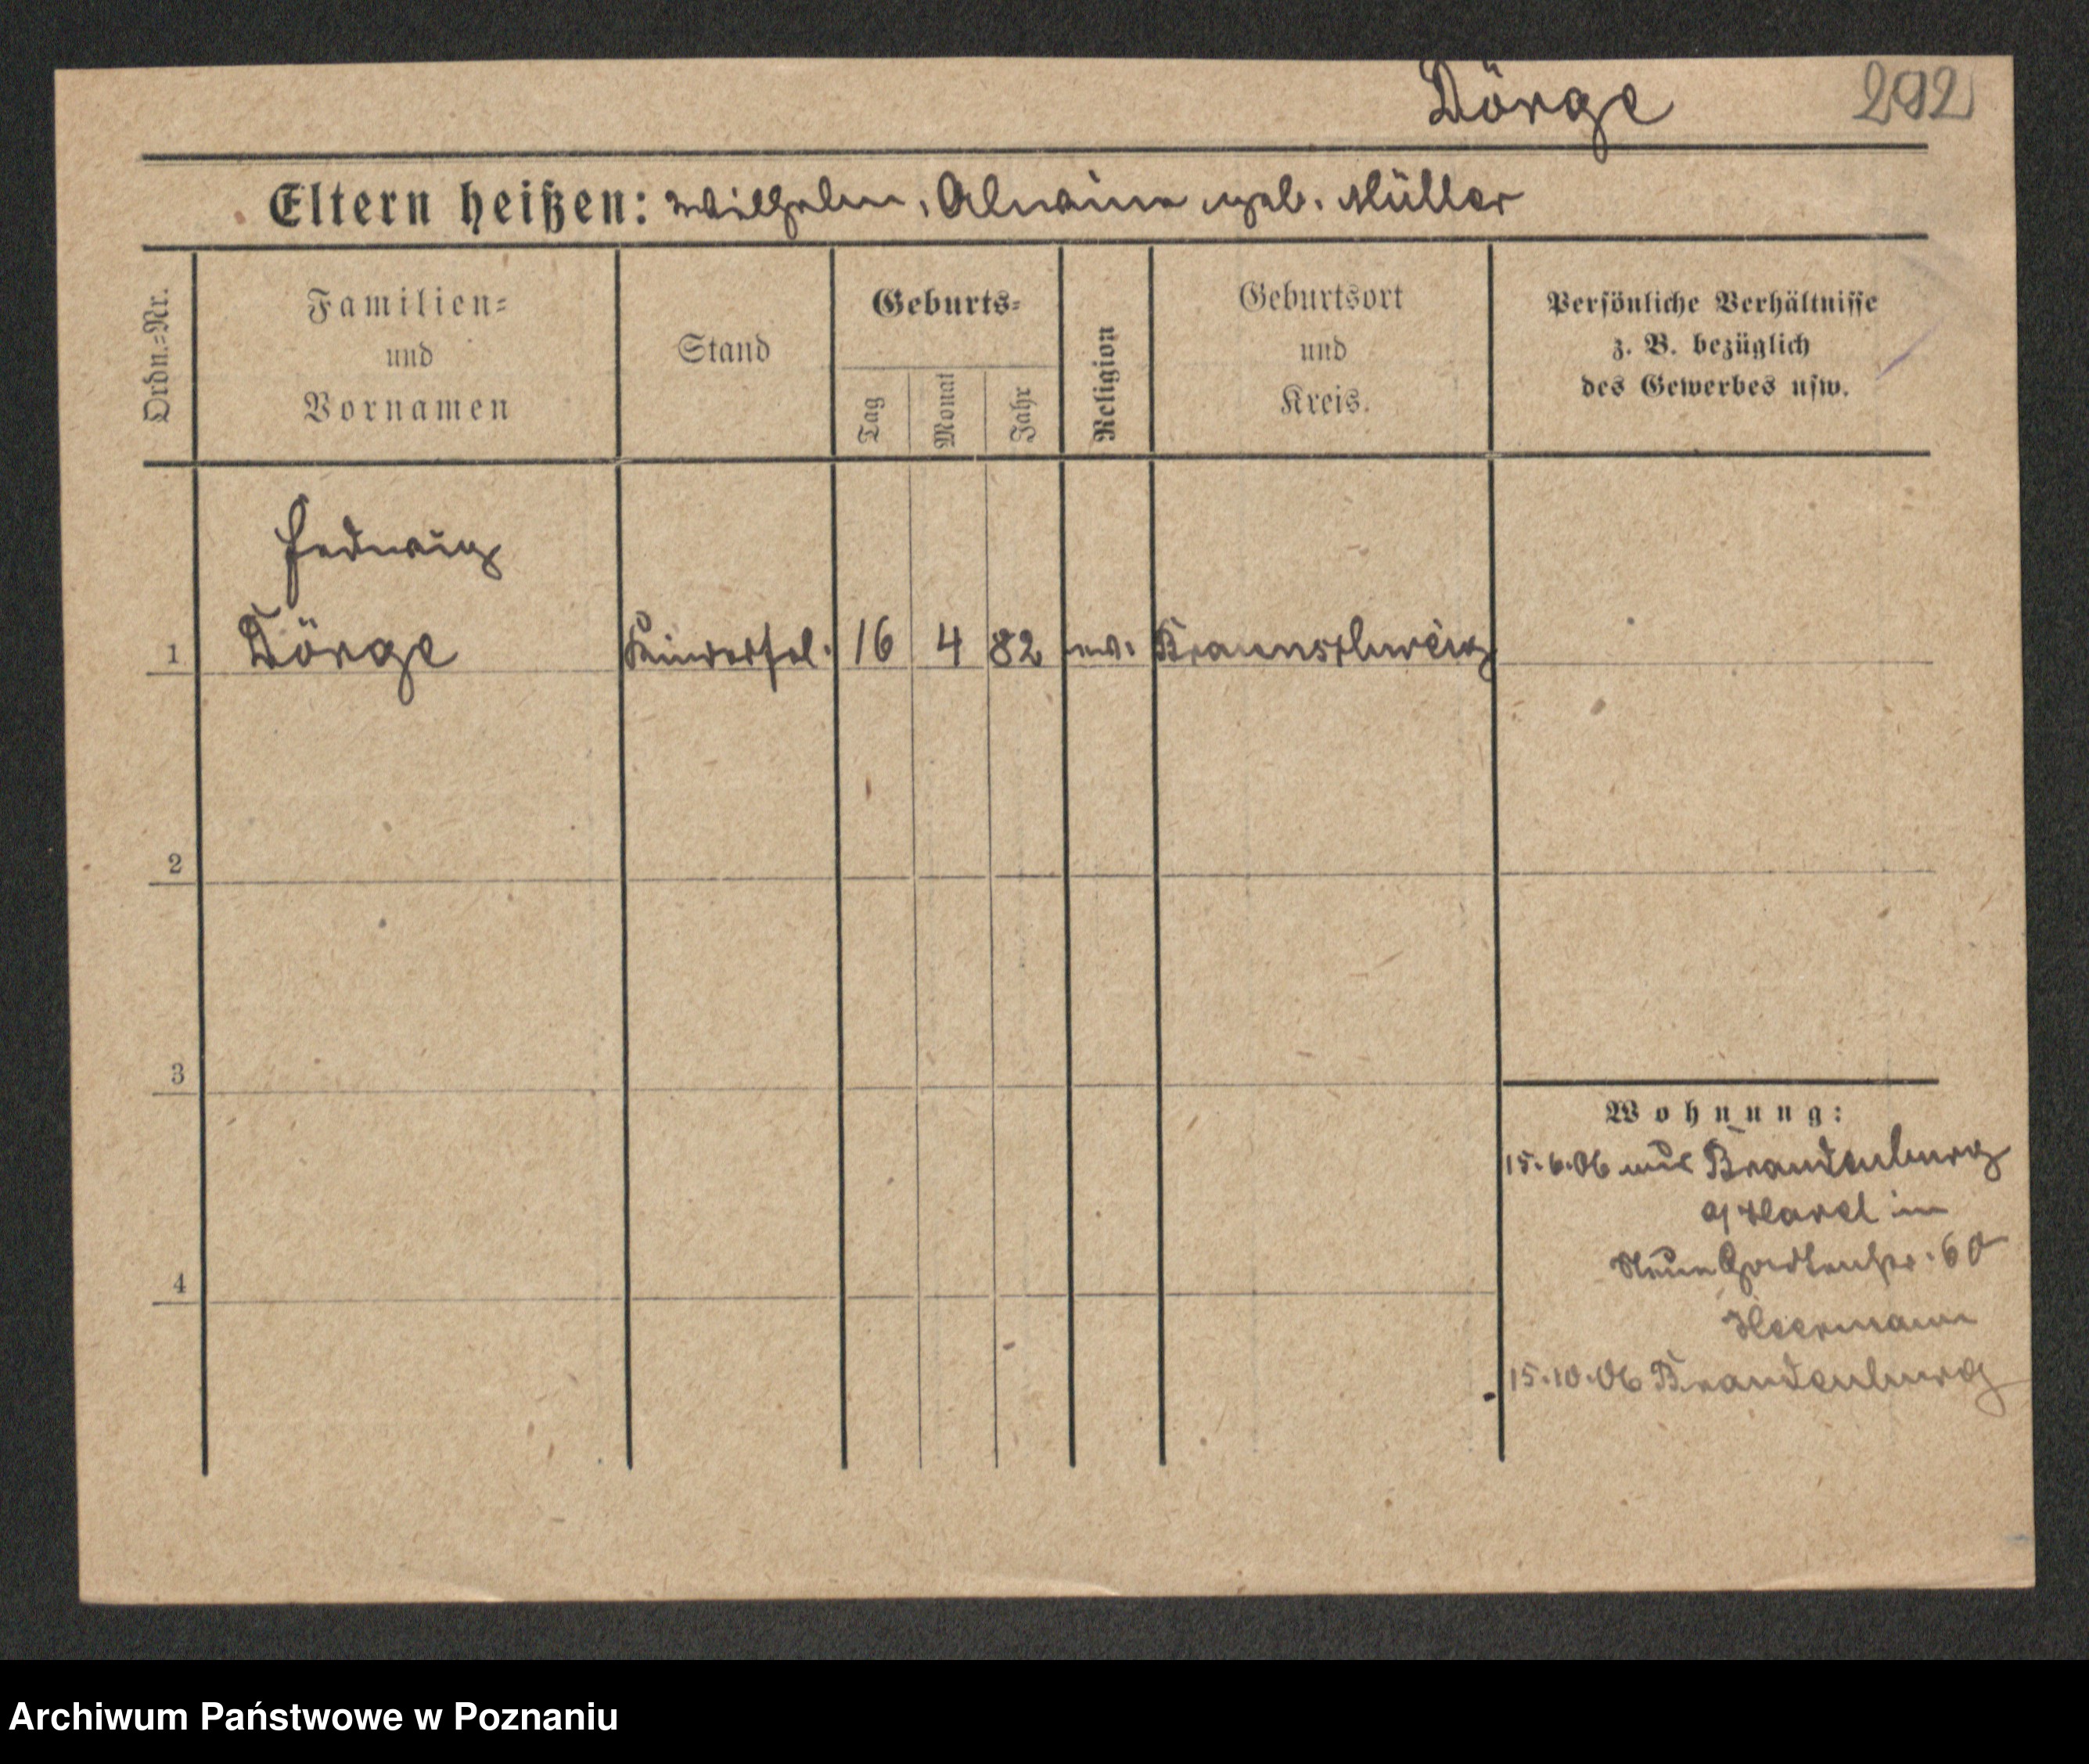 Dörge 292
Eltern heißen: Wilhelm, Alwine geb. Müller
Ordn.=Nr.
Familien=
und
Vornamen
Stand
Geburts=
Tag
Monat
Jahr
Religion
Geburtsort
und
Kreis.
Persönliche Verhältnisse
z. B. bezüglich
des Gewerbes usw.
Hedwig
1 Dörge Kinderfrl. 16 4 82 ev. Braunschweig
2
3
4
Wohnung:
15.6.06 aus Brandenburg
a/Havel in
Neue Gartenstr. 60
Heermann
15.10.06 Brandenburg
Archiwum Państwowe w Poznaniu